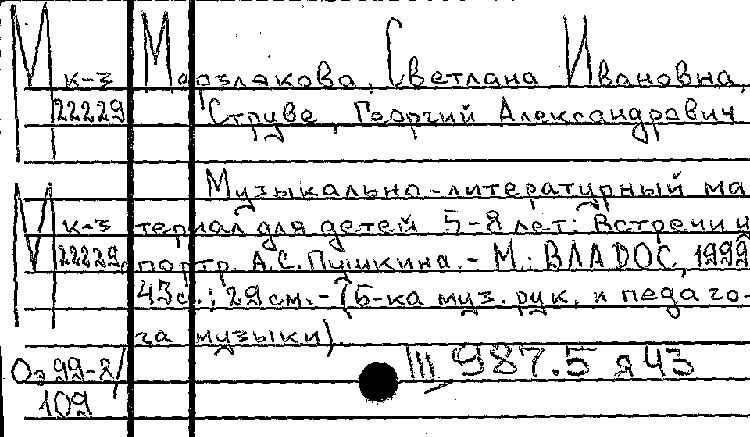 М к-з
22229
Мерзлякова, Светлана Ивановна,
Струве, Георгий Александрович
Музыкально-литературный ма
М к-з
22229
териал для детей 5-8 лет: Встречи у
портр. А.С. Пушкина. - М.: ВЛАДОС, 1999
43с.; 29см. - (Б-ка муз. рук. и педаго-
га музыки).
Оэ 99-8/
109
Щ 987.5 я43